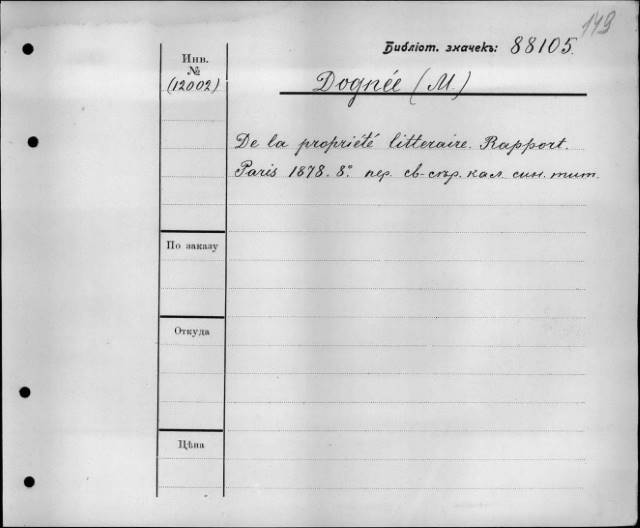 149
Библіот. значекъ: 88105.
Инв.
№
(12002)
Dognée (M.)
De la propriété litteraire. Rapport.
Paris 1878. 8° пер. св-сѣр. кал. син. тит.
По заказу
Откуда
Цѣна